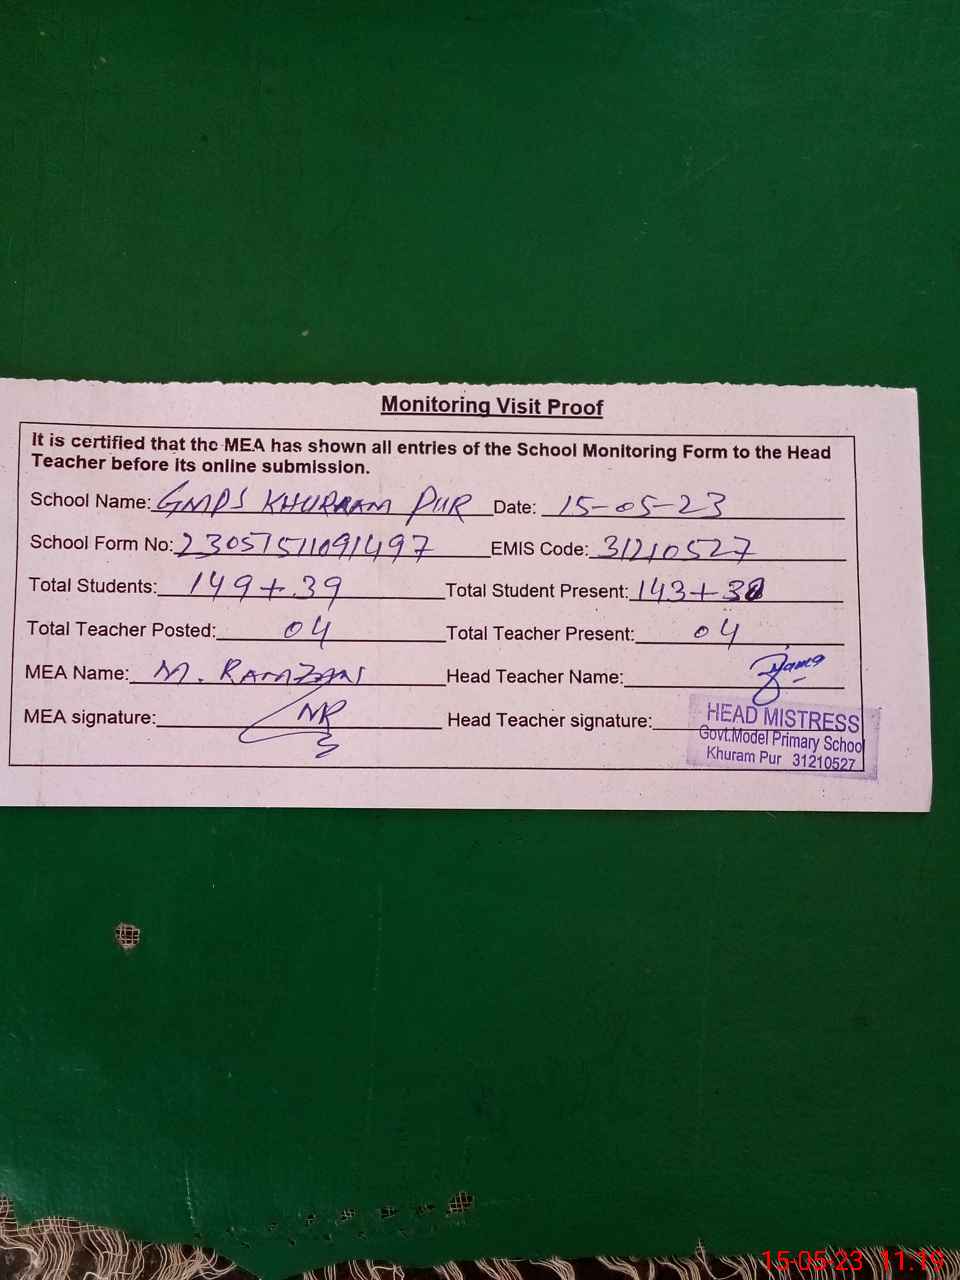 Monitoring Visit Proof
It is certified that the MEA has shown all entries of the School Monitoring Form to the Head
Teacher before its online submission.
School Name: GMPS KHURRAM PUR Date: 15-05-23
School Form No: 23051511091497 EMIS Code: 31210527
Total Students: 149+39 Total Student Present: 143+38
Total Teacher Posted: 04 Total Teacher Present: 04
MEA Name: M. RAMZAN Head Teacher Name:
MEA signature: MR Head Teacher signature:
HEAD MISTRESS
Govt.Model Primary School
Khuram Pur 31210527
15-05-23 11:19